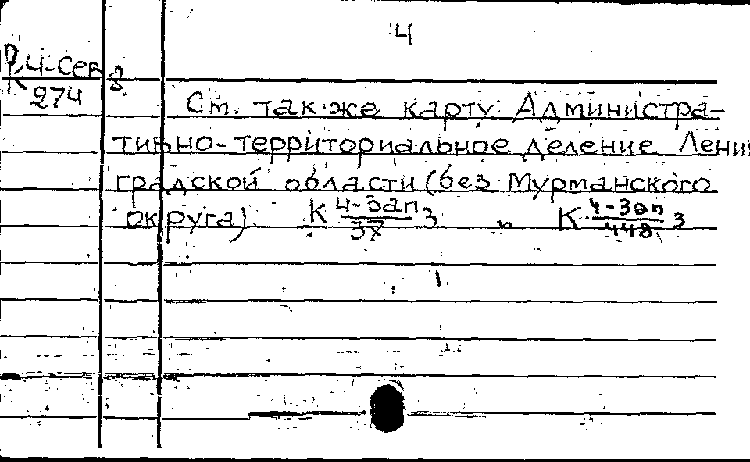 4
К 4-Сев 8
274
См. также карту: Администра-
тивно-территориальное деление Ленин
градской области (без Мурманского
округа) К 4-Зап 3 и К 4-Зап 3